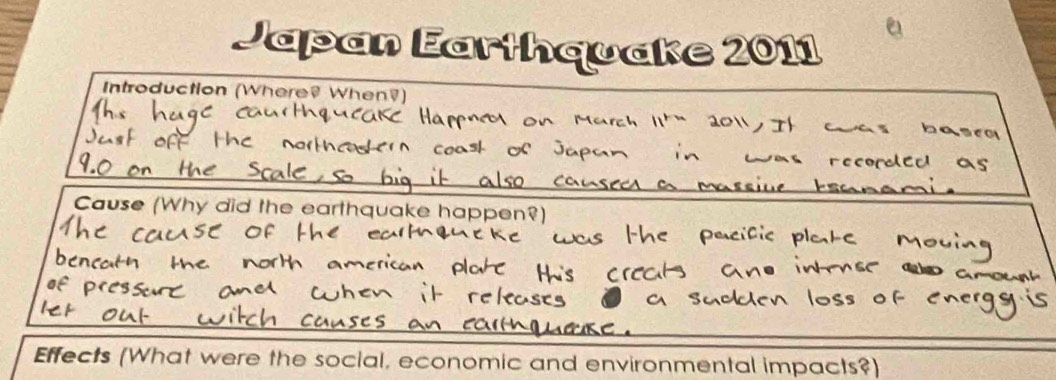 Japan Earthquake 2011
Introduction (Where? When?)
This huge caurthqueake Happned on March 11th 2011, It was based
Just off the northeastern coast of Japan in was recorded as
9.0 on the scale, so big it also caused a massive tsunami.
Cause (Why did the earthquake happen?)
The cause of the earthqueke was the pacific plate moving
beneath the north american plate this creats ano intense amount
of pressure and when it releases a sudden loss of energy is
let out witch causes an earthquake.
Effects (What were the social, economic and environmental impacts?)